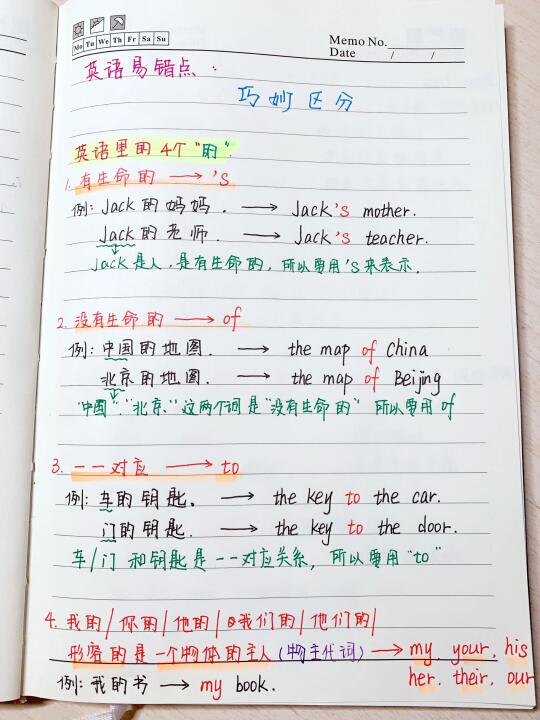 Mo Tu We Th Fr Sa Su
Memo No.
Date / /
英语易错点:
巧妙区分
英语里的4个"的".
1. 有生命的 → 's
例: Jack的妈妈. → Jack's mother.
Jack的老师. → Jack's teacher.
Jack是人, 是有生命的, 所以要用's来表示.
2. 没有生命的 → of
例: 中国的地图. → the map of China
北京的地图. → the map of Beijing
"中国"、"北京"、这两个词是"没有生命的" 所以要用of
3. 一一对应 → to
例: 车的钥匙. → the key to the car.
门的钥匙. → the key to the door.
车/门 和钥匙是一一对应关系, 所以要用"to"
4. 我的/你的/他的/我们的/他们的/
形容的是一个物体的主人(物主代词) → my, your, his
her. their, our
例: 我的书 → my book.